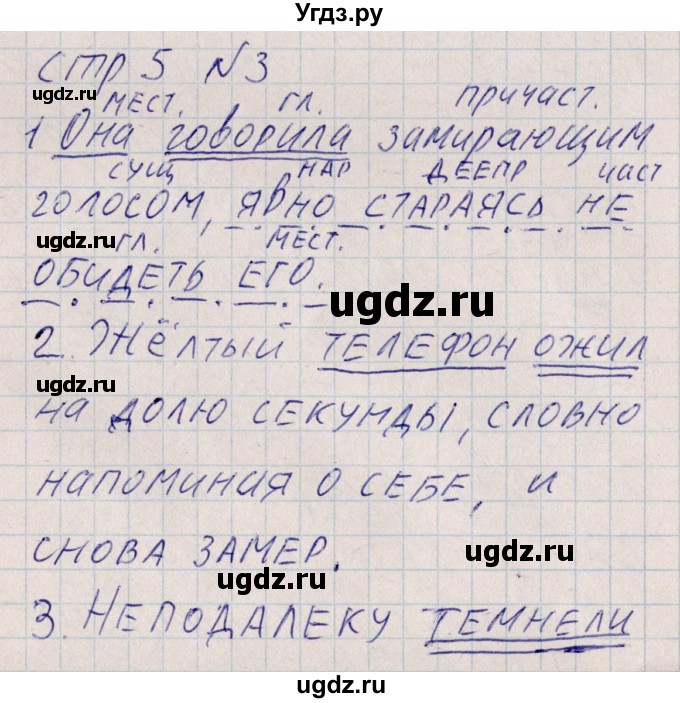 Угдз.ру
стр 5 №3
угdz.ru
мест. гл. причаст.
1 Она говорила замирающим
сущ нар деепр част
голосом, явно стараясь не
ugdz.ru
гл. мест.
обидеть его.
ugdz.ru
2. Жёлтый телефон ожил
ugdz.ru
на долю секунды, словно
напоминая о себе, и
снова замер.
ugdz.ru ugdz.ru
3. Неподалеку темнели
ugdz.ru
ugdz.ru